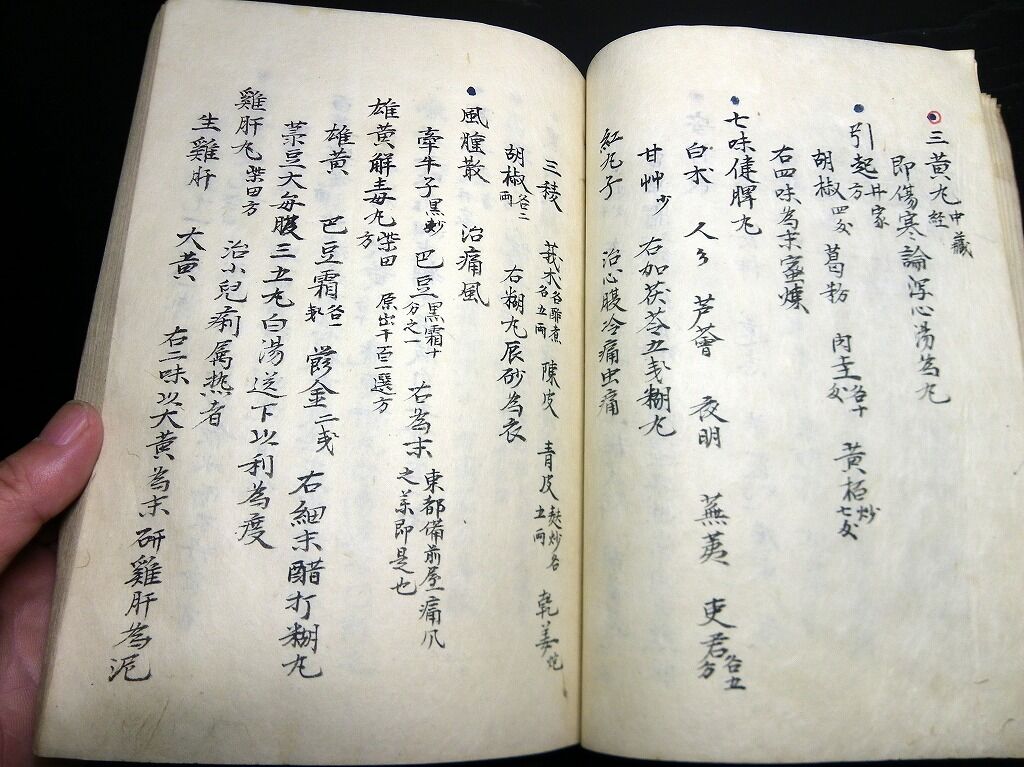 三黄丸 中藏經
即傷寒論瀉心湯為丸
引起 井家方
胡椒 四文 葛粉 肉圭 各十文 黄栢 炒七文
右四味為末蜜煉
七味健脾丸
白朮 人 芦薈 夜明 蕪荑 史君 各五
甘艸 少 右加茯苓五戔糊丸
紅丸子 治心腹冷痛虫痛
三稜 莪朮 各醋煮各五両 陳皮 青皮 麩炒各五両 乾姜 炮
胡椒 各二両 右糊丸辰砂為衣
風腫散 治痛風
牽牛子 黒炒 巴豆 黒霜十分之一 右為末 東都備前屋痛爪之薬即是也
雄黄解毒丸 柴田方 原出千百一選方
雄黄 巴豆霜 各一戔 欝金 二戔 右細末醋打糊丸
菉豆大每服三五丸白湯送下以利為度
雞肝丸 柴田方 治小兒痢属热者
生雞肝 大黄 右二味以大黄為末研雞肝為泥